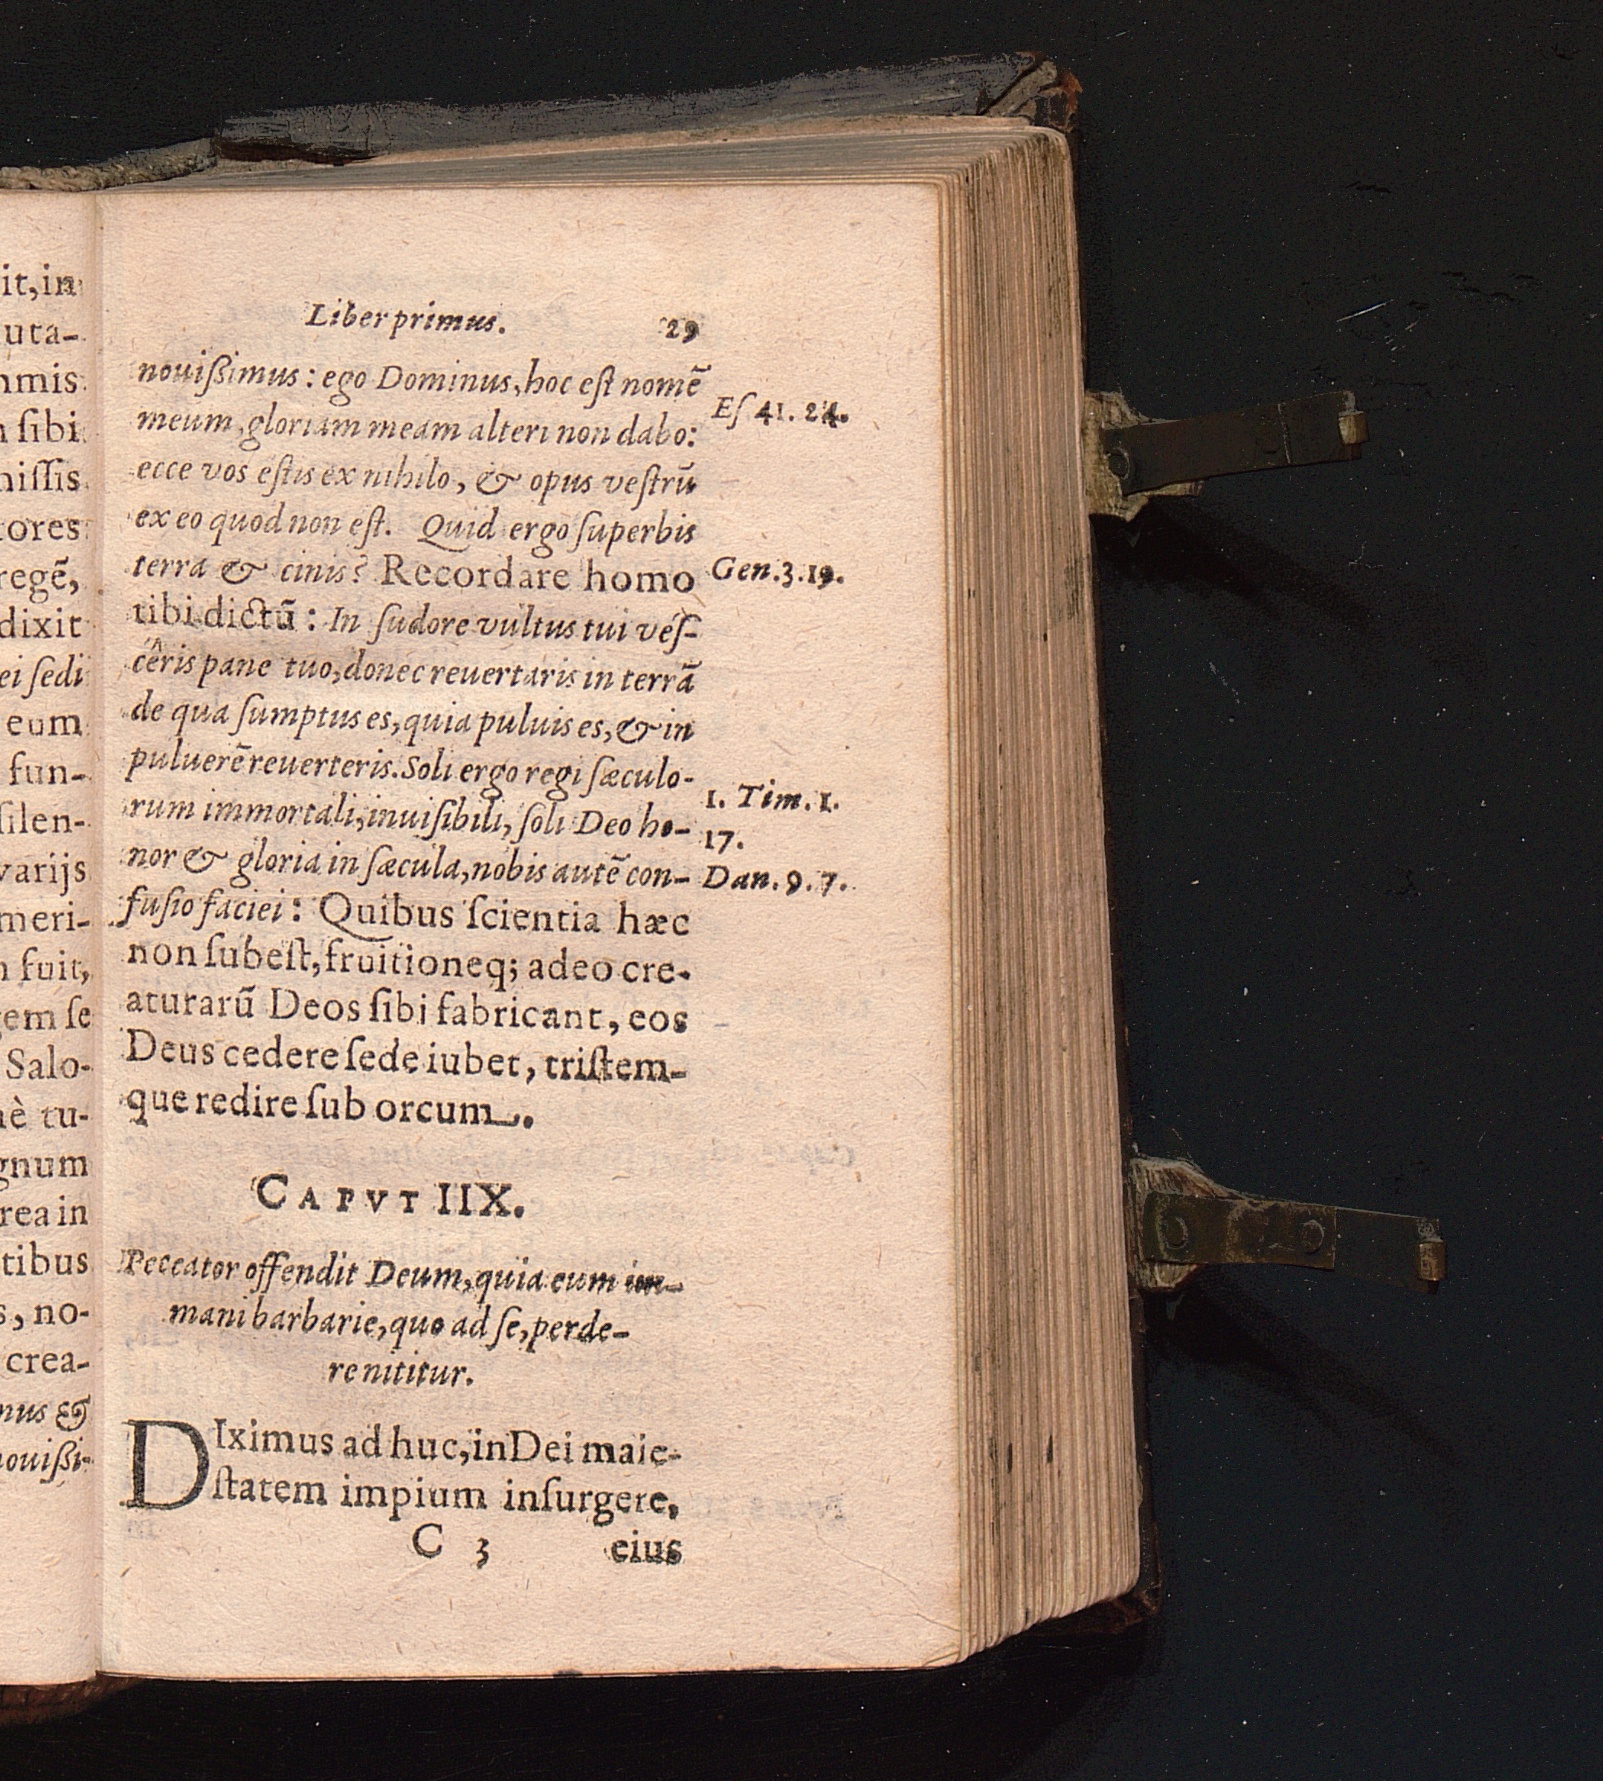 it, in
uta-
mmis
ſibi
miſſis
tores
regē,
dixit
ei ſedi
eum
fun-
ſilen-
varijs
meri-
fuit,
gem ſe
Salo-
nè tu-
gnum
rea in
tibus
s, no-
crea-
nus &
nouiſſi-
Liber primus. 29
nouiſſimus: ego Dominus, hoc eſt nomē
Eſ 41. 24.
meum, gloriam meam alteri non dabo:
ecce vos eſtis ex nihilo, & opus veſtrū
ex eo quod non eſt. Quid ergo ſuperbis
terra & cinis? Recordare homo
Gen. 3. 19.
tibi dictū: In ſudore vultus tui veſ-
cêris pane tuo, donec reuertaris in terrā
de qua ſumptus es, quia puluis es, & in
puluerē reuerteris. Soli ergo regi ſæculo-
1. Tim. 1.
rum immortali, inuiſibili, ſoli Deo ho-
17.
nor & gloria in ſæcula, nobis autē con-
Dan. 9. 7.
fuſio faciei: Quibus ſcientia hæc
non ſubeſt, fruitioneq; adeo cre-
aturarū Deos ſibi fabricant, eos
Deus cedere ſede iubet, triſtem-
que redire ſub orcum.
CAPVT IIX.
Peccator offendit Deum, quia eum im-
mani barbarie, quo ad ſe, perde-
re nititur.
DIximus ad huc, in Dei maie-
ſtatem impium inſurgere,
C 3 eius